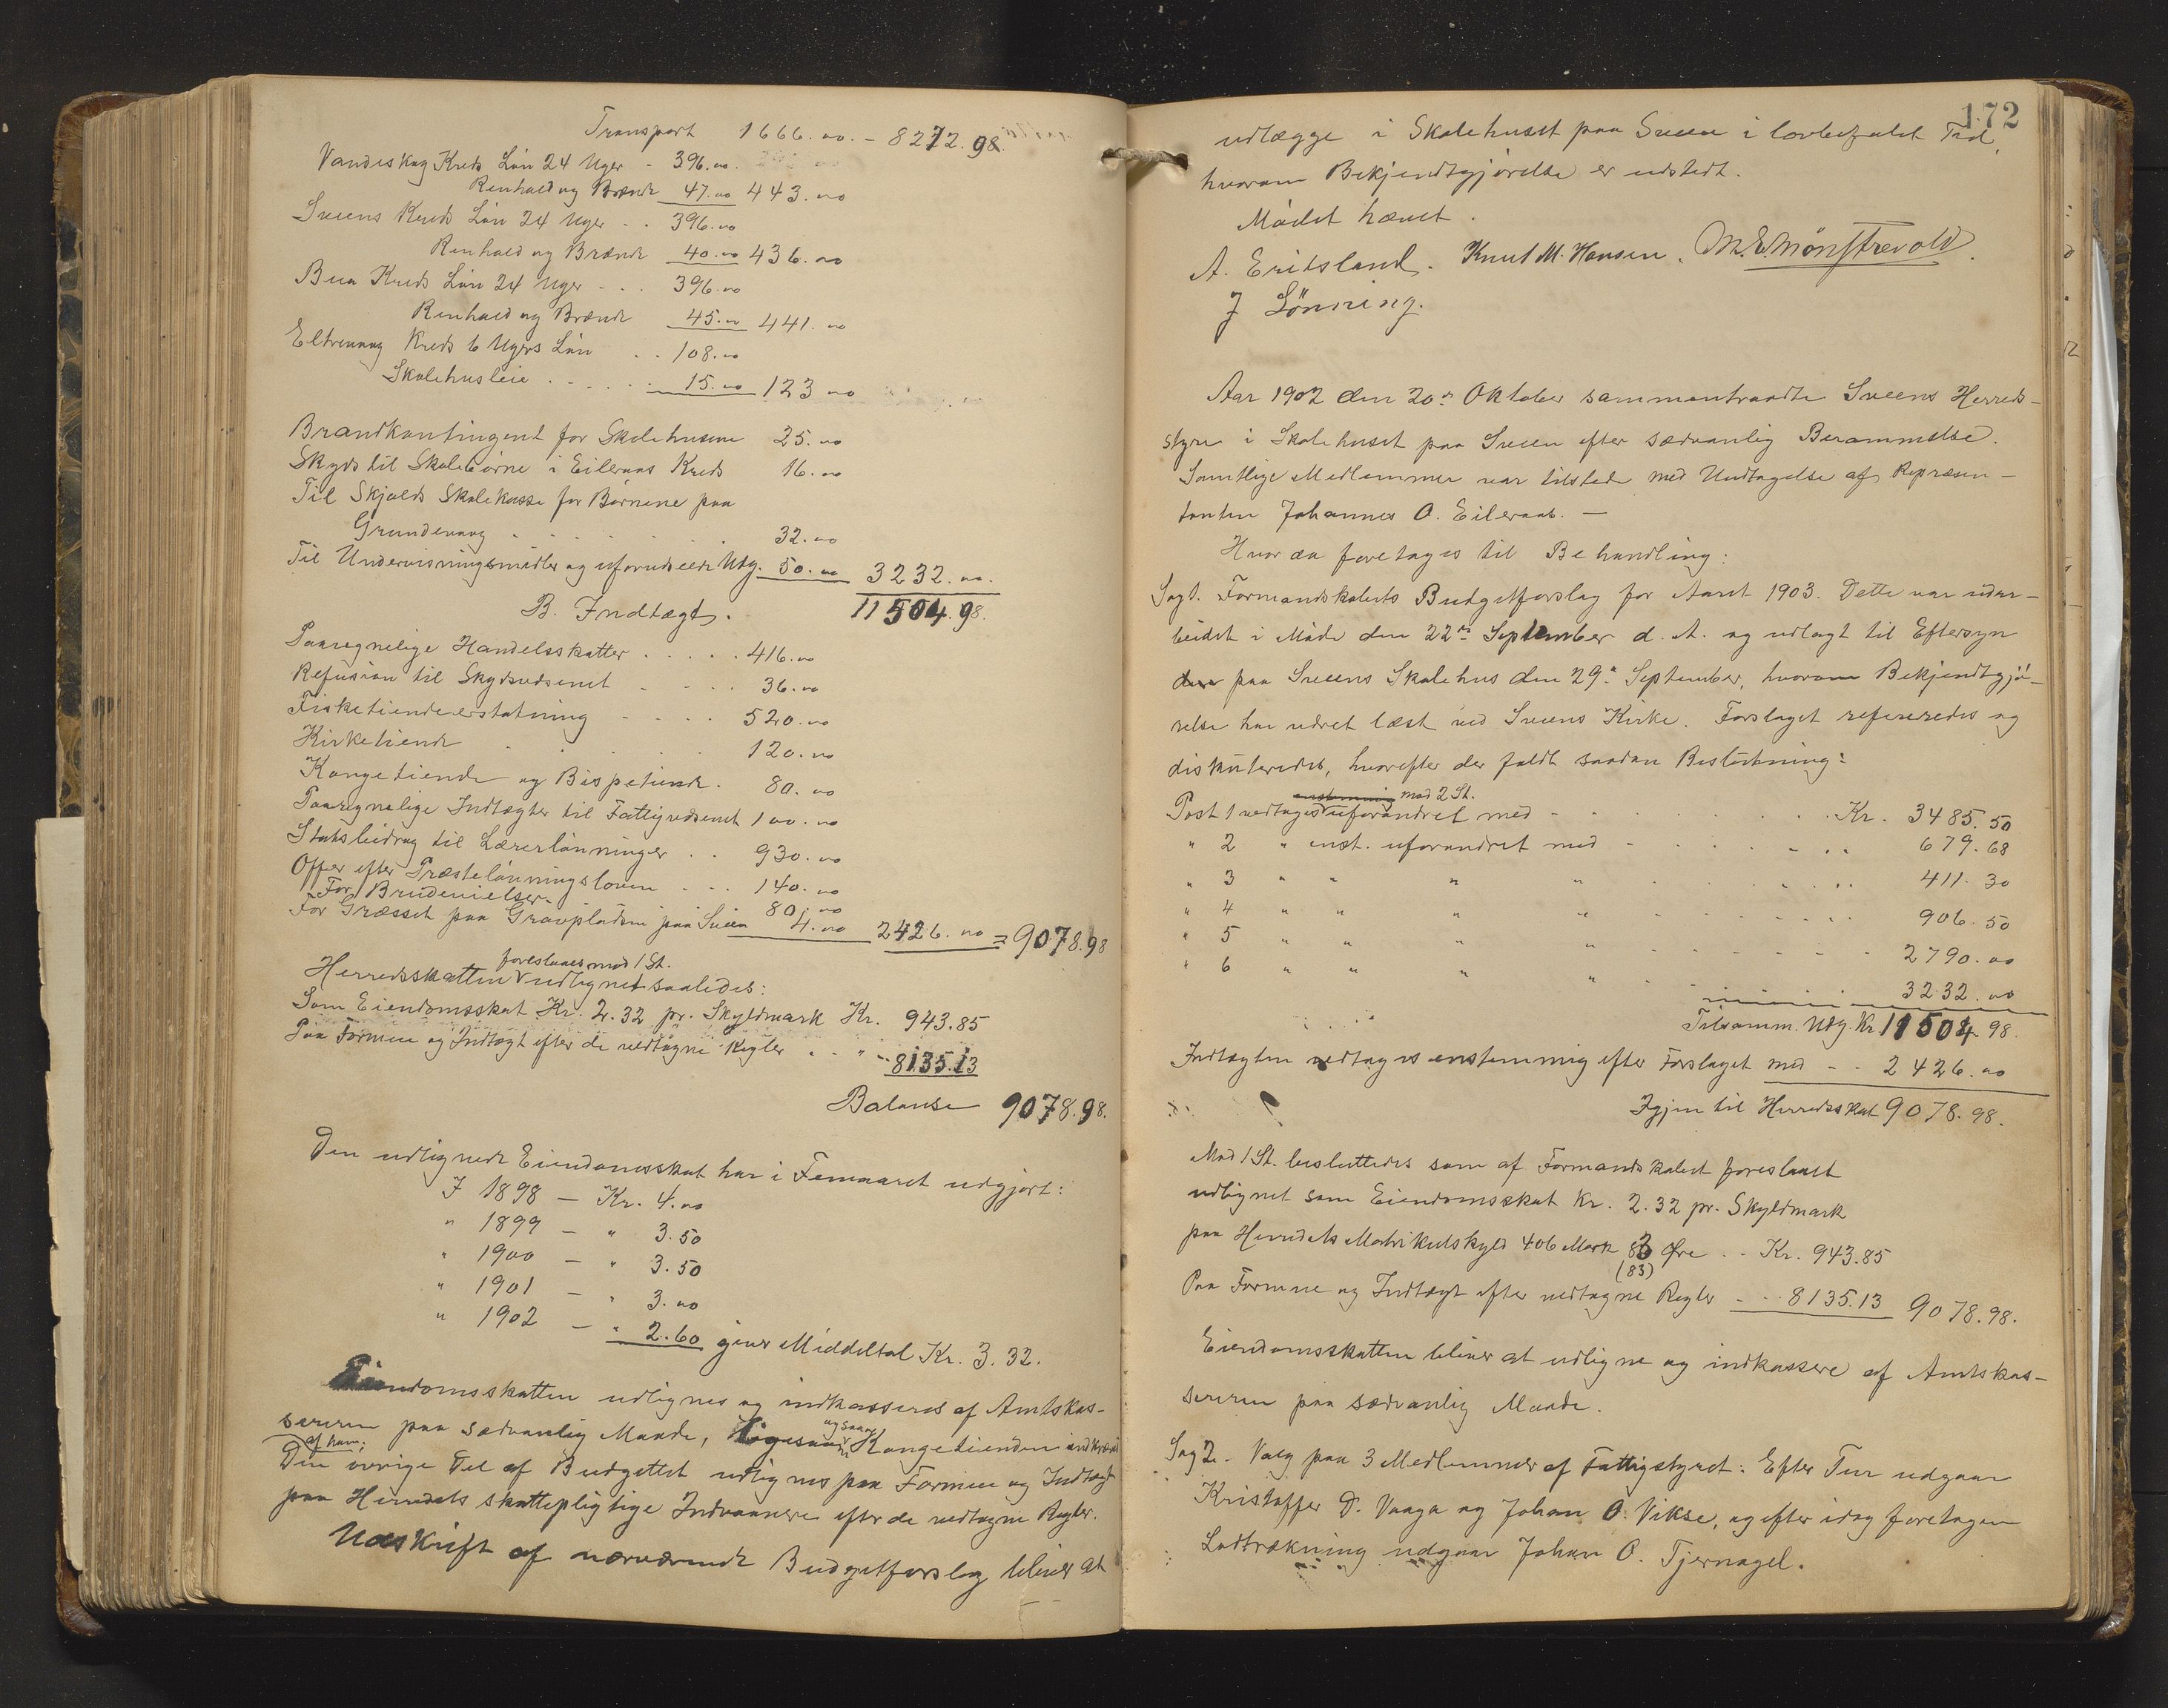 Transport 1666.00. - 8272.98.
Vandeskog Kreds Løn 24 Uger - 396.00.
Renhold og Brænde 47.00 443.00
Sveens Kreds Løn 24 Uger . . 396.00
Renhold og Brænde 40.00 436.00
Bua Kreds Løn 24 Uger - . . 396.00
Renhold og Brænde 45.00 441.00
Eltrevaag Kreds 6 Ugers Løn . . 108.00
Skolehusleie . . . . . . 15.00 123.00
Brandkontingent for Skolehusene 25.00
Skyds til Skolebørne i Eileraas Kreds 16.00
Til Skjolds Skolekasse for Børnene paa
Grundevaag . . . . . . 32.00
Til Undervisningsmidler og uforudseede Udg. 50.00 3232.00.
B. Indtægt. 11504.98.
Paaregnelige Handelsskatter . . . . . 416.00
Refusion til Skydsvæsenet - . . . 36.00
Fisketiendeerstatning - . . . 520.00
Kirketiende . . . . . 120.00
Kongetiende og Bispetiende . 80.00
Paaregnelige Indtægter til Fattigvæsenet 100.00
Statsbidrag til Lærerlønninger . . 930.00
Offer efter Præstelønningsloven - . . 140.00
For Brudevielser 80.00
For Græsset paa Gravpladsen paa Sveen 4.00 2426.00 = 9078.98
foreslaaes mod 1 St.
Herredsskatten udlignet saaledes:
Som Eiendomsskat Kr. 2.32 pr. Skyldmark Kr. 943.85
Paa Formue og Indtægt efter de vedtagne Regler . . " - 8135.13
Balanse 9078.98.
Den udlignede Eiendomsskat har i Femaaret udgjort:
I 1898 - Kr. 4.00
" 1899 - " 3.50
" 1900 - " 3.50
" 1901 - " 3.00
" 1902 - " 2.60 giver Middeltal Kr. 3.32.
Eiendomsskatten udlignes og indkasseres af Amtskas-
sereren paa sædvanlig Maade, ligesaa og saa Kongetienden indkræves
af ham;
Den øvrige Del af Budgettet udlignes paa Formue og Indtægt
paa Herredets skattepligtige Indvaanere efter de vedtagne Regler.
Udskrift af nærværende Budgetforslag bliver at
172
udlægge i Skolehuset paa Sveen i lovbefalet Tid,
hvorom Bekjendtgjørelse er udstedt.
Mødet hævet.
A. Eridsland. Knut M. Hansen. M. E. Mønstrevold.
J Lönning.
Aar 1902 den 20de Oktober sammentraadte Sveens Herreds-
styre i Skolehuset paa Sveen efter sædvanlig Berammelse.
Samtlige Medlemmer var tilstede med Undtagelse af Repræsen-
tanten Johannes O. Eileraas. -
Hvor da foretages til Behandling:
Sag 1. Formandskabets Budgetforslag for Aaret 1903. Dette var udar-
beidet i Møde den 22de September d. A. og udlagt til Eftersyn
den paa Sveens Skolehus den 29de September, hvorom Bekjendtgjø-
relse har været læst ved Sveens Kirke. Forslaget refereredes og
diskuteredes, hvorefter der faldt saadan Beslutning:
enstemmig mod 2 St.
Post 1 vedtages uforandret med - . . . . . . . Kr. 3485.50
" 2 " enst. uforandret med - . . . . . 679.68
" 3 " " " " . . . . 411.30
" 4 " " " " . . . . 906.50
" 5 " " " " . . . . 2790.00
" 6 " " " " . . . . 3232.00
Tilsamm. Udg. Kr. 11504.98.
Indtægten vedtages enstemmig efter Forslaget med - - 2426.00
Igjen til Herredsskat 9078.98.
Mod 1 St. besluttedes som af Formandskabet foreslaaet
udlignet som Eiendomsskat Kr. 2.32 pr. Skyldmark
paa Herredets Matrikulskyld 406 Mark 83 Øre . . Kr. 943.85
(83)
Paa Formue og Indtægt efter vedtagne Regler - - - 8135.13 9078.98.
Eiendomsskatten bliver at udligne og indkassere af Amtskas-
sereren paa sædvanlig Maade.
Sag 2. Valg paa 3 Medlemmer af Fattigstyret: Efter Tur udgaar
Kristoffer D. Vaaga og Johan O. Vikse, og efter idag foretagen
Lodtrækning udgaar Johan O. Tjernagel.